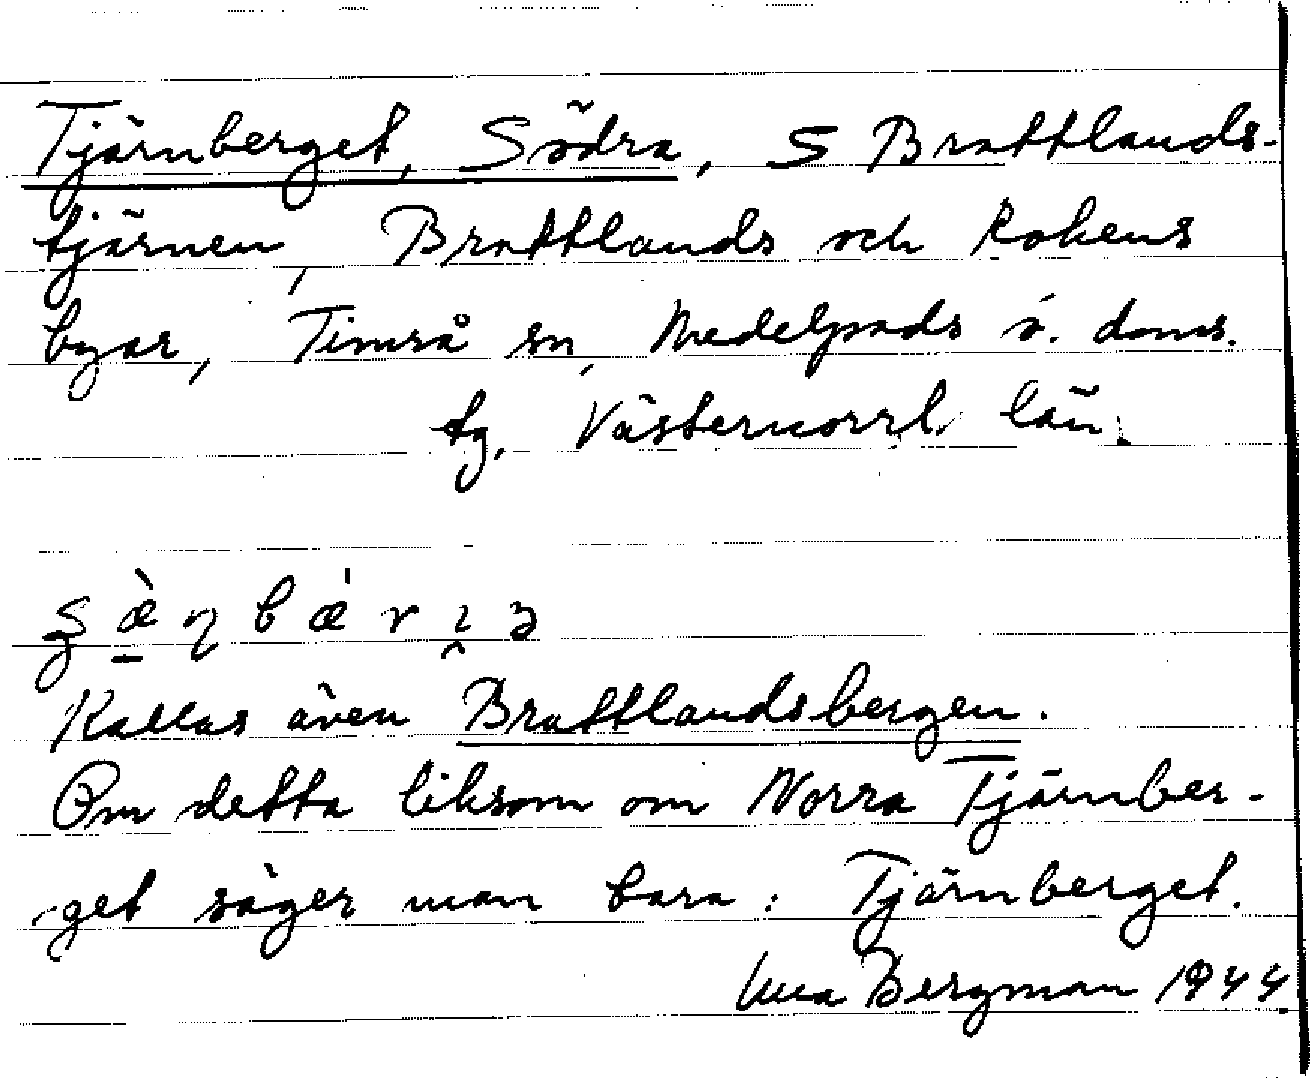 Tjärnberget, Södra, S Brattlands-
tjärnen, Brattlands och Rokens
byar, Timrå sn, Medelpads ö. doms.
tg, Västernorrl. län.
Kallas även Brattlandsbergen.
Om detta liksom om Norra Tjärnber-
get säger man bara: Tjärnberget.
Bergman 1944